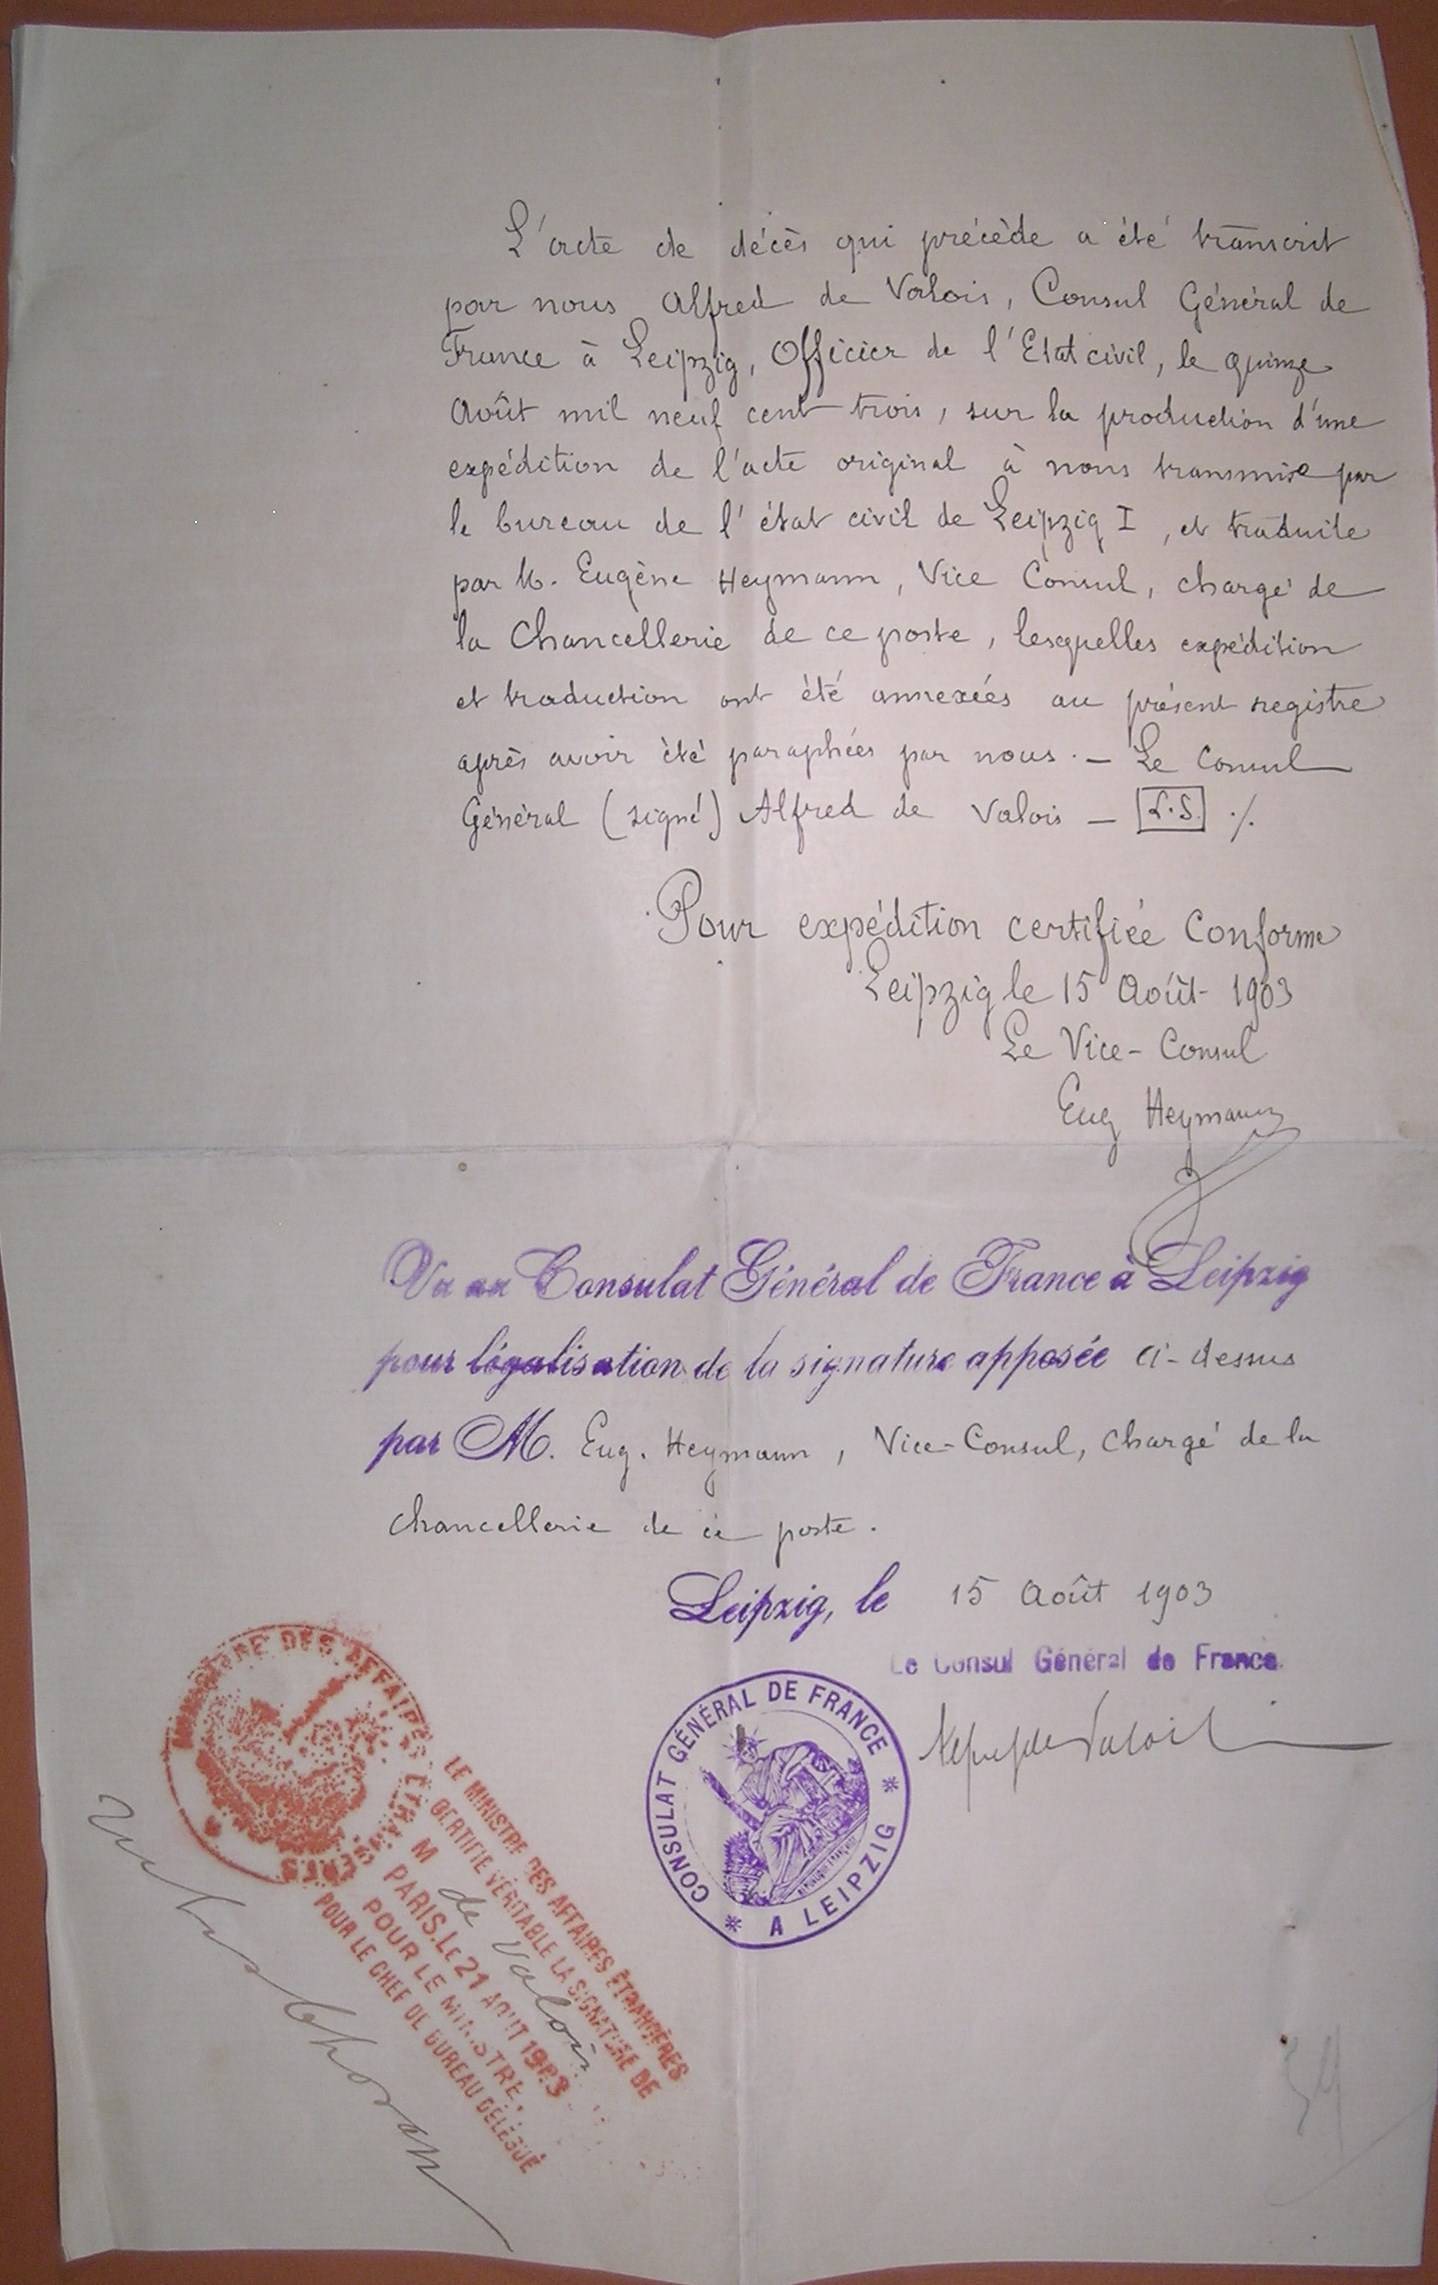 L'acte de décès qui précède a été transcrit
par nous Alfred de Valois, Consul Général de
France à Leipzig, Officier de l'Etat civil, le quinze
Août mil neuf cent trois, sur la production d'une
expédition de l'acte original à nous transmise par
le bureau de l'état civil de Leipzig I, et traduite
par M. Eugène Heymann, Vice Consul, chargé de
la Chancellerie de ce poste, lesquelles expédition
et traduction ont été annexées au présent registre
après avoir été paraphées par nous. — Le Consul
Général (signé) Alfred de Valois — L.S. ./.
Pour expédition certifiée conforme
Leipzig le 15 Août 1903
Le Vice-Consul
Eug Heymann
Vu au Consulat Général de France à Leipzig
pour légalisation de la signature apposée ci-dessus
par M. Eug. Heymann, Vice-Consul, chargé de la
chancellerie de ce poste.
Leipzig, le 15 Août 1903
Le Consul Général de France
Alfred de Valois
CONSULAT GÉNÉRAL DE FRANCE
* A LEIPZIG *
MINISTÈRE DES AFFAIRES ÉTRANGÈRES
LE MINISTRE DES AFFAIRES ÉTRANGÈRES
CERTIFIE VÉRITABLE LA SIGNATURE DE
M de Valois
PARIS, LE 21 AOUT 1903
POUR LE MINISTRE
POUR LE CHEF DE BUREAU DÉLÉGUÉ